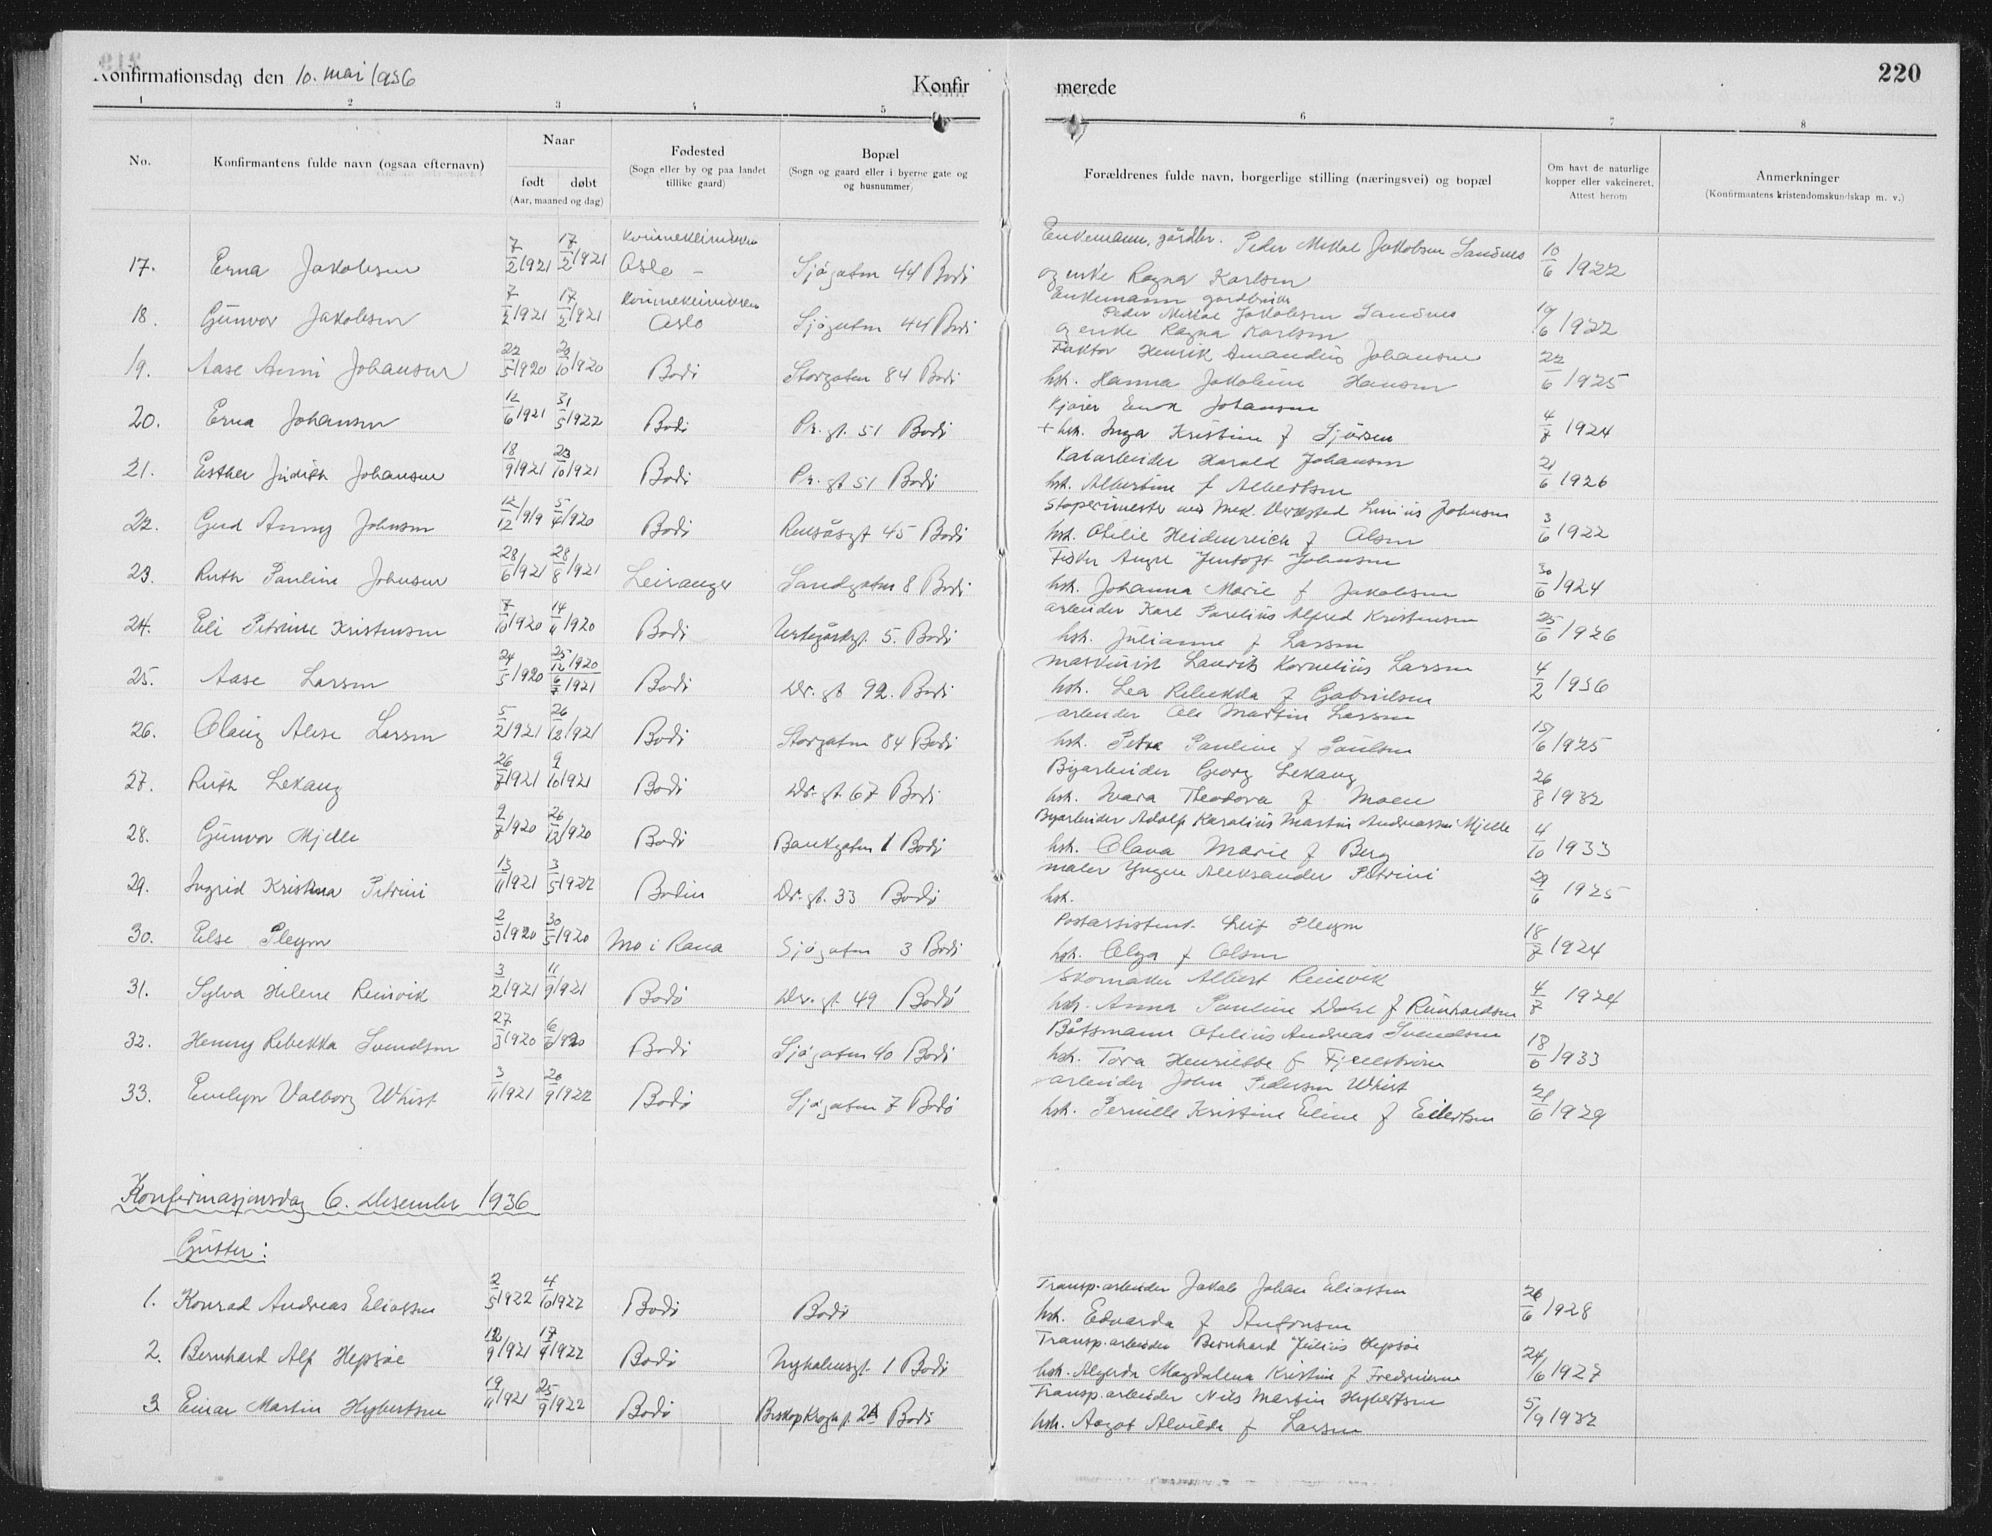 Konfirmationsdag den 10. mai 1936
Konfirmerede
220
1 2 3 4 5 6 7 8
No.
Konfirmantens fulde navn (ogsaa efternavn)
Naar
født døbt
(Aar, maaned og dag)
Fødested
(Sogn eller by og paa landet
tillike gaard)
Bopæl
(Sogn og gaard eller i byerne gate og
og husnummer)
Forældrenes fulde navn, borgerlige stilling (næringsvei) og bopæl
Om havt de naturlige
kopper eller vakcineret.
Attest herom
Anmerkninger
(Konfirmantens kristendomskundskap m. v.)
Enkemann, gårdbr. Peder Mikal Jakobsen Sandnes
17. Erna Jakobsen 7/2 1921 17/2 1921 Kvinneklinikken Oslo - Sjøgaten 44 Bodø 10/6 1922
og enke Ragna Karlsen
Enkemann gårdbruker
Peder Mikal Jakobsen Sandnes
18. Gunvor Jakobsen 7/2 1921 17/2 1921 Kvinneklinikken Oslo Sjøgaten 44 Bodø 10/6 1922
og enke Ragna Karlsen
Faktor Henrik Amandus Johansen
19. Aase Anni Johansen 22/5 1920 20/10 1920 Bodø Storgaten 84 Bodø 22/6 1925
hst. Hanna Jakobine Hansen
Kjører Enok Johansen
20. Erna Johansen 12/6 1921 31/5 1922 Bodø Pr. gt. 51 Bodø 4/7 1924
+ hst. Inga Kristine f
Johansen
Harald Johansen
21. Esther Judith Johansen 18/9 1921 23/10 1921 Bodø Pr. gt 51 Bodø 21/6 1926
hst. Albertine f Albertsen
Støperimester ved Mek. Verksted Johnsen
22. Gud Anny Johnsen 12/12 1919 5/4 1920 Bodø Rensåsgt 45 Bodø 3/6 1922
hst. Otilie Heidenreich f Olsen
Fisker Jentoft Johnsen
23. Ruth Pauline Johnsen 28/6 1921 28/8 1921 Leiranger Sandgaten 8 Bodø 30/6 1924
hst. Johanna Marie f Jakobsen
arbeider Karl Parelius Alfred Kristensen
24. Eli Petrine Kristensen 7/10 1920 14/11 1920 Bodø Urtegårdsgt 5. Bodø 25/6 1926
hst. Julianne f Larsen
maskinist Laurits Kornelius Larsen
25. Aase Larsen 24/5 1920 25/12 1920 6/7 1921 Bodø Dr. gt 92. Bodø 4/2 1936
hst. Lea Rebekka f Gabrielsen
arbeider Ole Martin Larsen
26. Olaug Alise Larsen 5/2 1921 26/12 1921 Bodø Storgaten 84 Bodø 15/6 1925
hst. Petra Pauline f Paulsen
Byarbeider Georg Lekang
27. Ruth Lekang 26/7 1921 9/10 1921 Bodø Dr. gt. 67 Bodø 26/8 1932
hst. Theodora f. Moen
Byarbeider Adolf Karolius Martin Andreassen Mjelle
28. Gunvor Mjelle 2/7 1920 26/12 1920 Bodø Bankgaten 1 Bodø 4/10 1933
hst. Olava Marie f Berg
maler Yngve Aleksander Petrini
29. Ingrid Kristina Petrini 13/11 1921 3/5 1922 Bodin Dr. gt. 33 Bodø 29/6 1925
hst.
Postassistent. Leif Pleym
30. Else Pleym 2/3 1920 30/5 1920 Mo i Rana Sjøgaten 3 Bodø 18/7 1924
hst. Olga f Olsen
Skomaker Albert Reinvik
31. Sylva Helene Reinvik 3/2 1921 11/9 1921 Bodø Dr. gt. 49 Bodø 4/7 1924
hst. Anna Pauline Dahl f Reinhardsen
Båtsmann Otelius Andreas Svendsen
32. Henny Rebekka Svendsen 27/3 1920 6/6 1920 Bodø Sjøgaten 40 Bodø 18/6 1933
hst. Tora Henriette f Fjellstrøm
arbeider John Pedersen Whist
33. Evelyn Valborg Whist 3/11 1921 20/9 1922 Bodø Sjøgaten 7 Bodø 21/6 1929
hst. Pernille Kristine Eline f Eilertsen
Konfirmasjonsdag 6. Desember 1936
Gutter:
Transp.arbeider Jakob Johan Eliassen
1. Konrad Andreas Eliassen 2/5 1922 4/10 1922 Bodø Bodø 26/6 1928
hst. Edvarda f Antonsen
Transp.arbeider Bernhard Julius Hepsøe
2. Bernhard Alf Hepsøe 12/9 1921 17/4 1922 Bodø Nyholmsgt. 1 Bodø 24/6 1927
hst. Magdalena Kristine f Fredriksen
Transp.arbeider Nils Martin Hybertsen
3. Einar Martin Hybertsen 19/11 1921 25/9 1922 Bodø Biskop Kroghs. 2A Bodø 5/9 1932
hst. Aagot Alvilde f Larsen